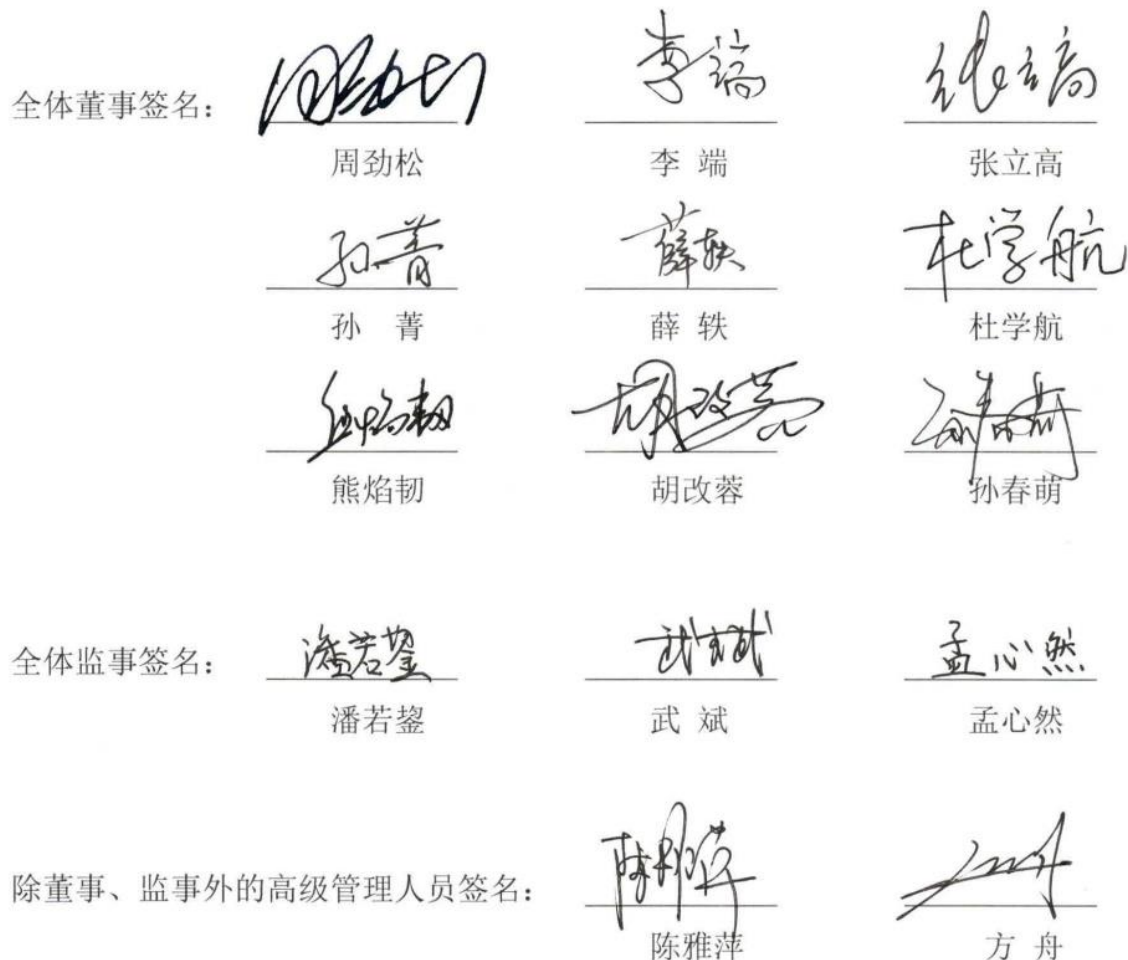 全体董事签名：
周劲松 李 端 张立高
孙 菁 薛 轶 杜学航
熊焰韧 胡改蓉 孙春萌
全体监事签名：
潘若鋆 武 斌 孟心然
除董事、监事外的高级管理人员签名：
陈雅萍 方 舟